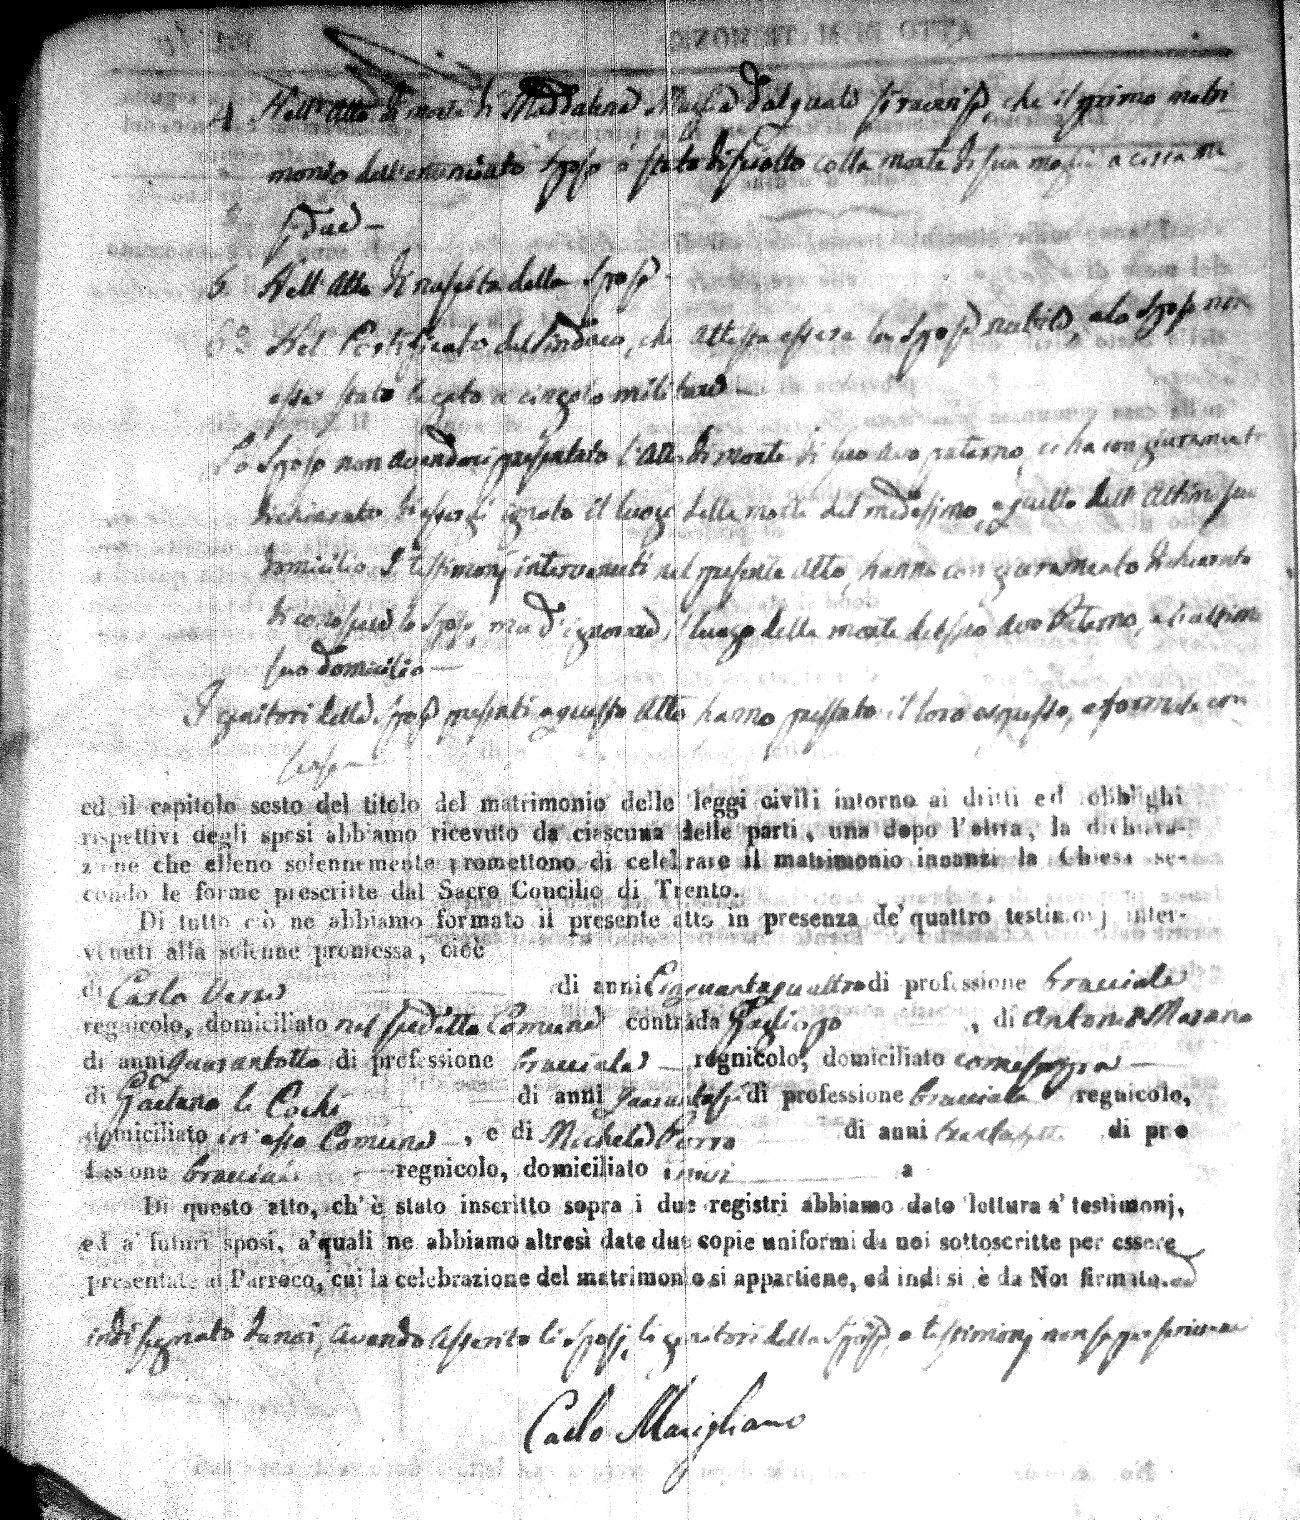 4 Nell'Atto di morte di Maddalena dal quale si rileva, che il primo matri
monio dell'enunciato Sposo è stato disciolto colla morte di sua moglie a circa
5 Nell'Atto di nascita della Sposa
6º Nel Certificato del Sindaco, che attesta essere la Sposa nubile, e lo Sposo non
esser stato legato a cingolo militare
Lo Sposo non avendoci presentato l'Atto di morte di suo avo paterno, ci ha con giuramento
dichiarato di essergli ignoto il luogo della morte del medesimo, e quello dell'ultimo suo
domicilio. I testimonj intervenuti nel presente atto, hanno con giuramento dichiarato
di conoscere lo Sposo, ma d'ignorare il luogo della morte del suo avo Paterno, e l'ultimo
suo domicilio
I genitori della Sposa presenti a questo Atto hanno prestato il loro espresso, e formale con
senso
ed il capitolo sesto del titolo del matrimonio delle leggi civili intorno ai dritti ed obblighi
rispettivi degli sposi abbiamo ricevuto da ciascuna delle parti, una dopo l'altra, la dichiara-
zione che elleno solennemente promettono di celebrare il matrimonio innanzi la Chiesa se-
condo le forme prescritte dal Sacro Concilio di Trento.
Di tutto ciò ne abbiamo formato il presente atto in presenza de' quattro testimonj inter-
venuti alla solenne promessa, cioè
di Carlo di anni Cinquantaquattro di professione bracciale
regnicolo, domiciliato nel suddetto Comune contrada, di Antonio Marano
di anni quarantotto di professione bracciale regnicolo, domiciliato come sopra
di Gaetano di anni di professione bracciale regnicolo,
domiciliato in esso Comune, e di Michele Porro di anni di pro
fessione bracciale regnicolo, domiciliato ivi
Di questo atto, ch' è stato inscritto sopra i due registri abbiamo dato lettura a' testimonj,
ed a' futuri sposi, a' quali ne abbiamo altresì date due copie uniformi da noi sottoscritte per essere
presentate al Parroco, cui la celebrazione del matrimonio si appartiene, ed indi si è da Noi firmato. ed
indi segnato da noi, avendo asserito li sposi, li genitori della Sposa, e testimonj non saper scrivere
Carlo Marigliano